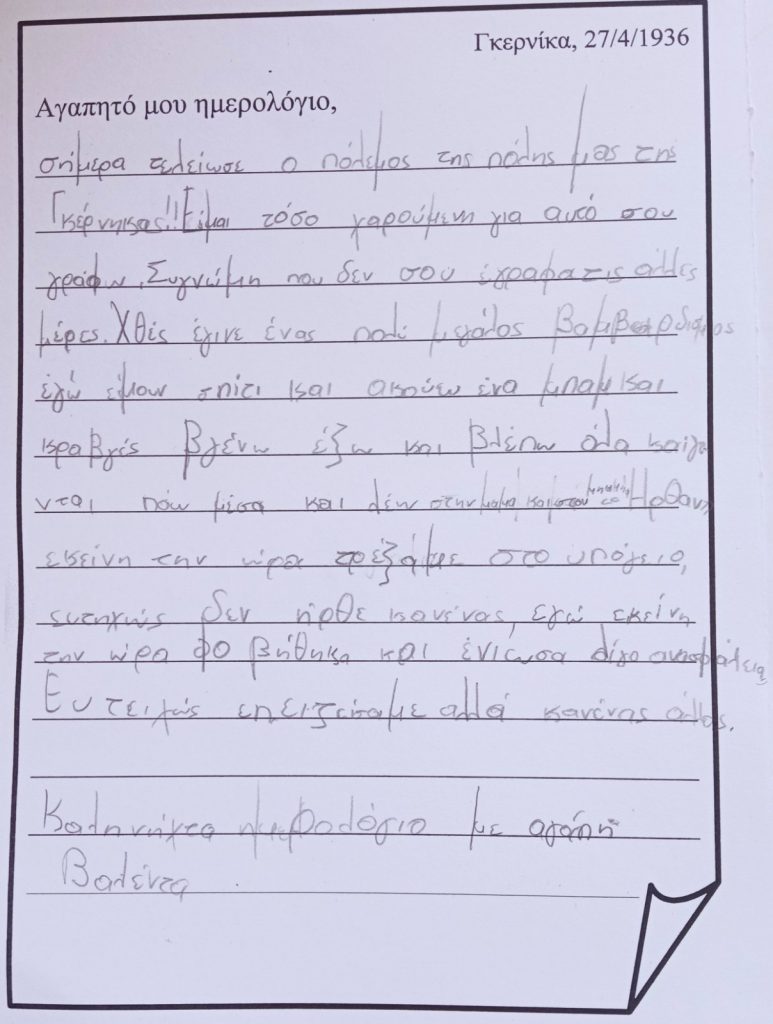 Γκερνίκα, 27/4/1936
Αγαπητό μου ημερολόγιο,
σήμερα τελείωσε ο πόλεμος της πόλης μας της
Γκέρνηκας!! Είμαι τόσο χαρούμενη για αυτό σου
γράφω. Συγνώμη που δεν σου έγραφα τις άλλες
μέρες. Χθές έγινε ένας πολύ μεγάλος βομβαρδισμος
έγώ είμουν σπίτι και ακούω ένα μπαμ και
κραβγές βγένω έξω και βλέπω όλα καίγο
νται πάω μέσα και λέω στην μαμά και στον Ηρθαν
εκείνη την ώρα τρέξαμε στο υπόγειο,
ευτηχώς δεν ήρθε κανένας, εγώ εκείνη
την ώρα φοβήθηκα και ένιωσα λίγο ανασφάλεια
Ευτειχώς επειζείσαμε αλλά κανένας άλλος.
Καληνήχτα ημερολόγιο με αγάπη
Βαλέντα